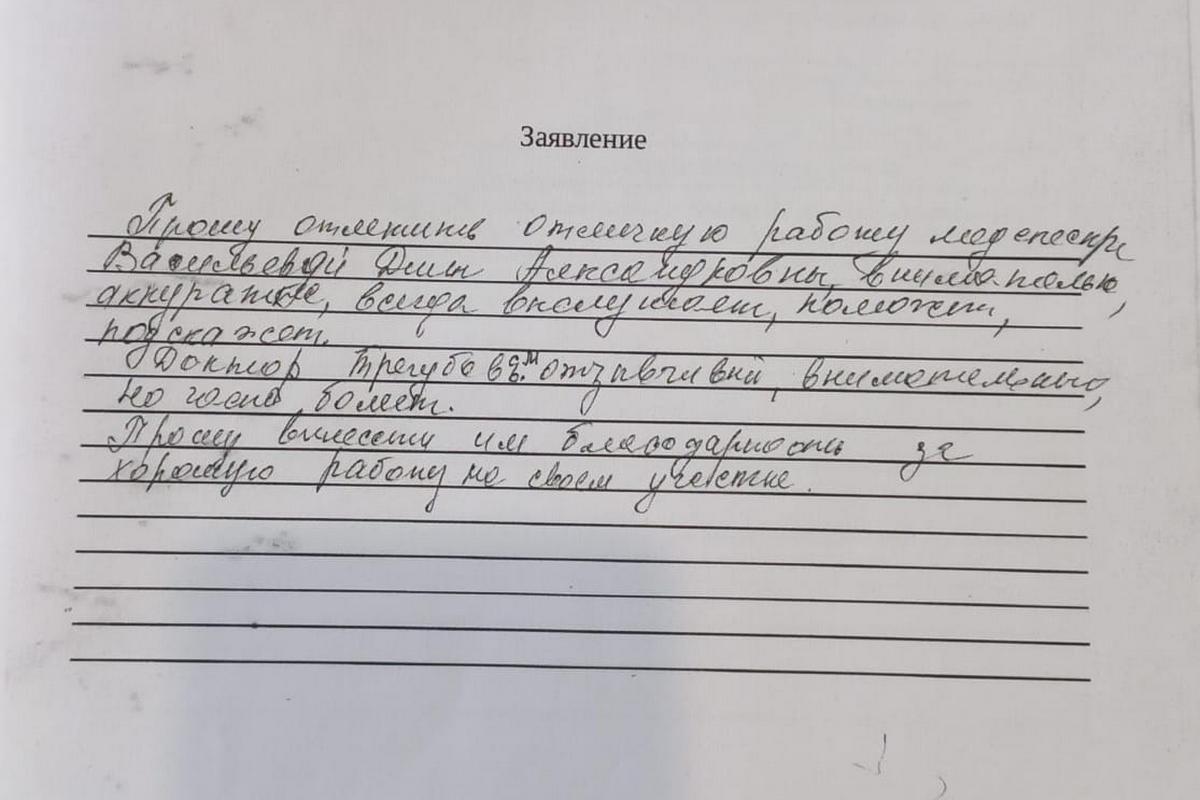 Заявление
Прошу отметить отличную работу медсестры
Васильевой Дины Александровны, внимательно,
аккуратно, всегда выслушает, поможет,
подскажет.
Доктор Трегубов С.М. отзывчивый, внимательный,
но часто болеет.
Прошу вынести им благодарность за
хорошую работу на своем участке.